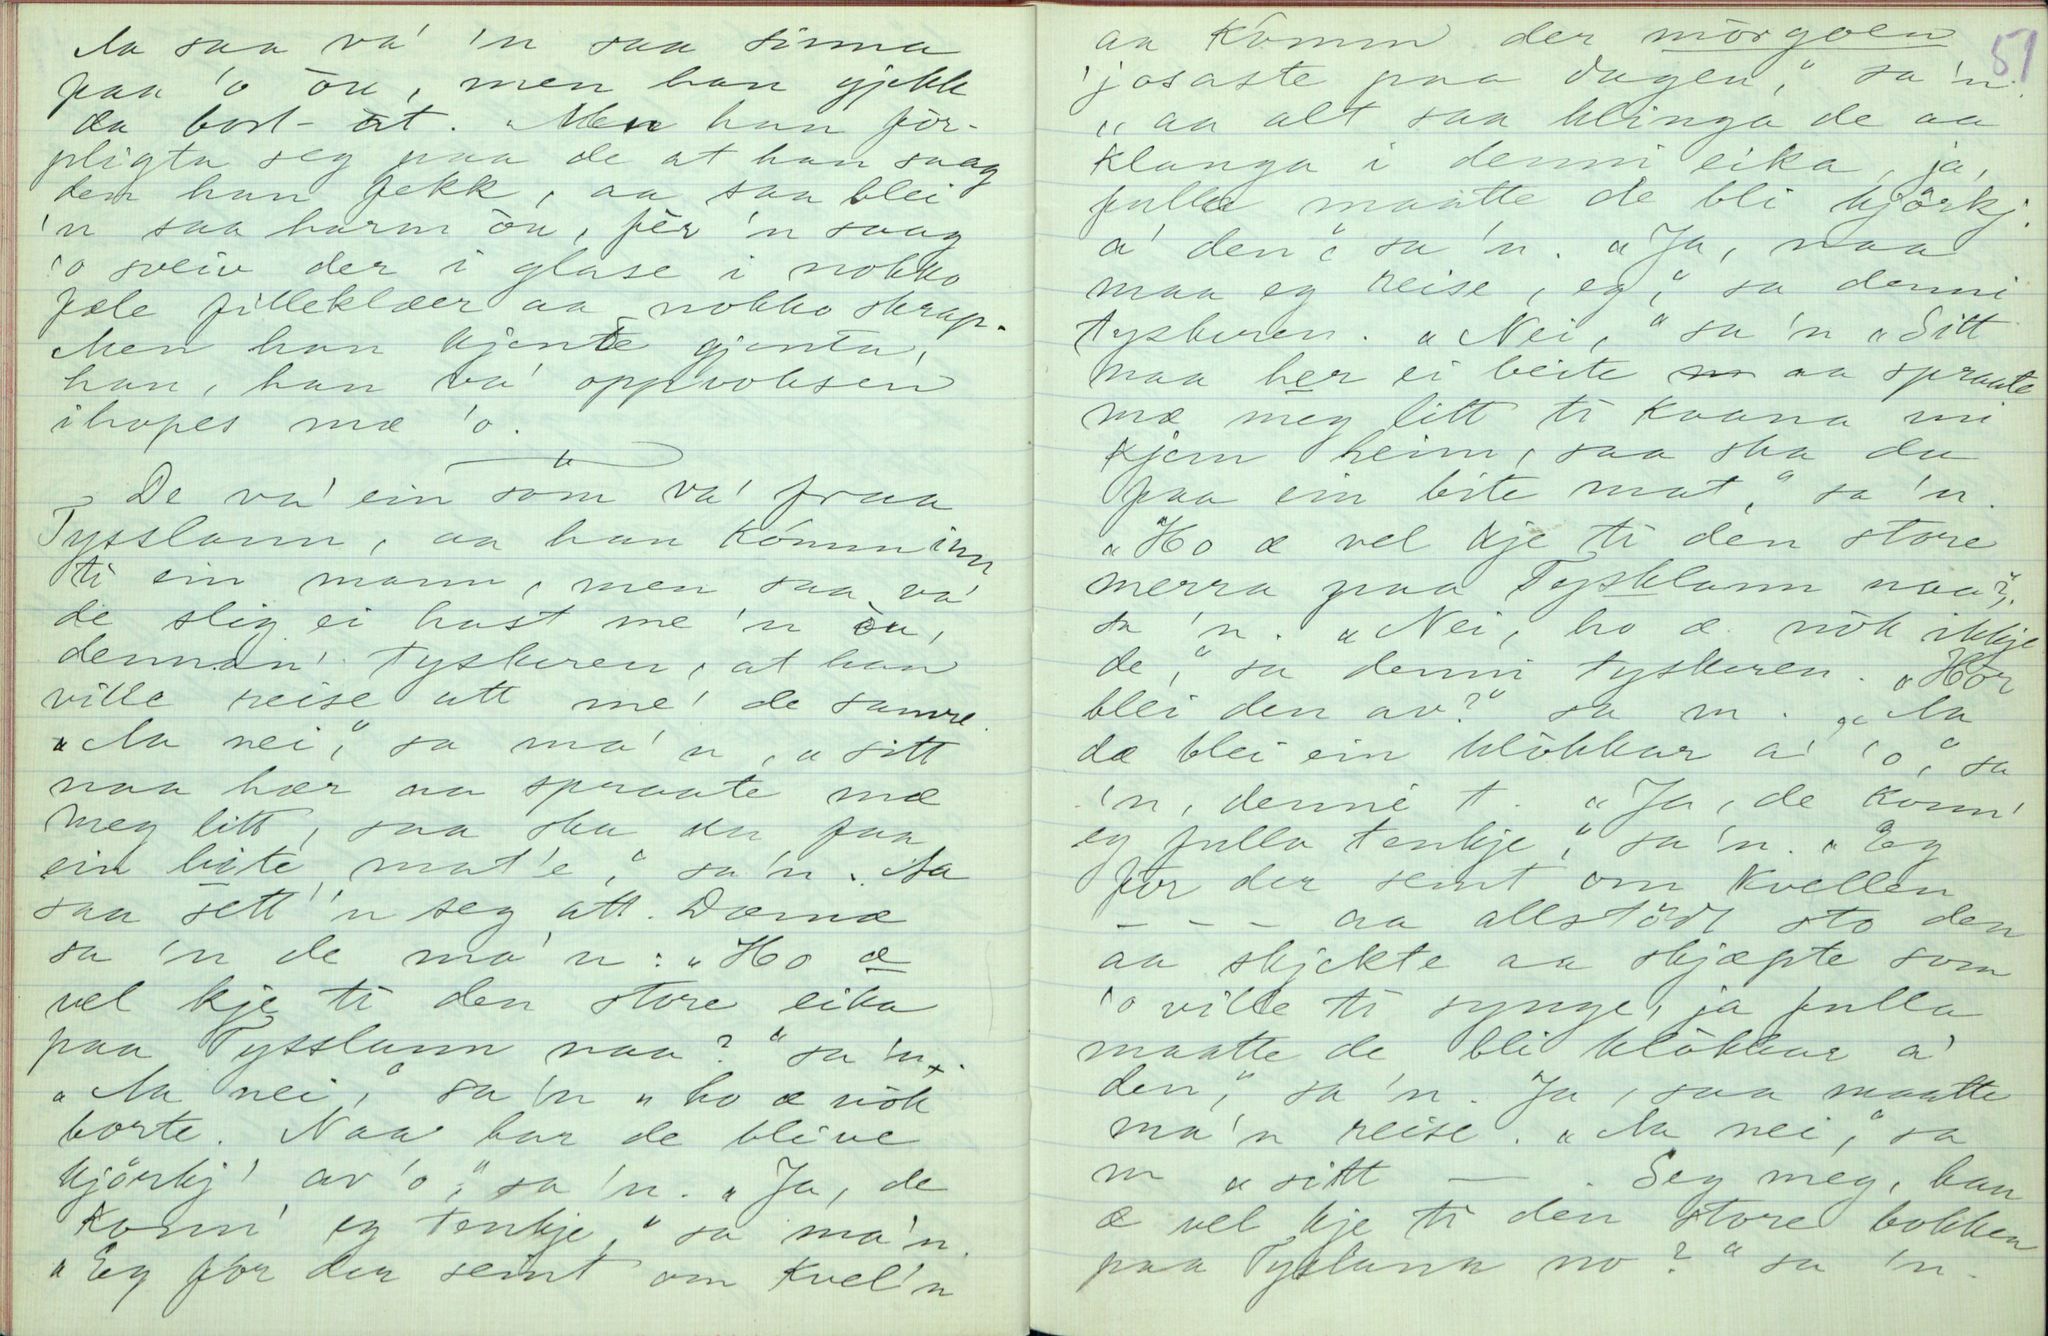 Aa saa va' 'n saa sinna
paa 'o òu, men han gjekk
da bort-òt. Men han för-
pligta seg paa de at han saag
den han fekk, aa saa blei
'n saa harm òu, fèr 'n saag
'o sveiv der i glase i nokko
fæle filleklæer aa nokko skrap.
Men han kjente gjenta,
han, han va' oppvoksen
ihopes mæ 'o.
De va' ein som va' fraa
Tysslann, aa han kómm inn
ti ein mann, men saa va'
de slig ei hast me 'n òu,
dennan' tyskeren, at han
ville reise att me' de samre.
„Aa nei," sa ma'n, „sitt
naa hær aa spraate mæ
meg litt, saa ska du faa
ein bite mat'e," sa'n. Aa
saa sett 'n seg att. Dæmæ
sa 'n de ma'n: „Ho æ
vel kje ti den store eika
paa Tysslann naa?" sa 'n.
„Aa nei," sa 'n „ho æ nòk
borte. Naa har de blive
kjörkj' av 'o," sa 'n. „Ja, de
konn' eg tenkje," sa ma'n.
„Eg fòr der seint om kvel'n
51
aa kómm der mòrgoen
'josaste paa dagen," sa 'n.
„aa alt saa klinga de aa
klanga i denni eika, ja,
fulla maatte de bli kjörkj.
a' den" sa 'n. „Ja, naa
maa eg reise, eg," sa denni
tyskeren. „Nei," sa 'n „Sitt
naa her ei beite aa spraate
mæ meg litt ti kaana mi
kjem heim, saa ska du
faa ein bite mat," sa 'n.
„Ho æ vel kje ti den store
merra paa Tysklann naa?",
sa 'n. „Nei, ho æ nòk ikkje
de," sa denni tyskeren. „Hòr
blei den av?" sa 'n. „Aa
dæ blei ein klòkkar a' 'o," sa
'n, denni t. „Ja, de konn'
eg fulla tenkje," sa 'n. „Eg
fòr der seint om kvellen
- - - aa allstödt sto den
aa skjekte aa skjæpte som
'o ville ti synge, ja fulla
maatte de bli klòkkar a'
den," sa 'n. Ja, saa maatte
ma'n reise. „Aa nei," sa
'n „sitt —. Seg meg, han
æ vel kje ti den store bokken
paa Tyslann no?" sa 'n.